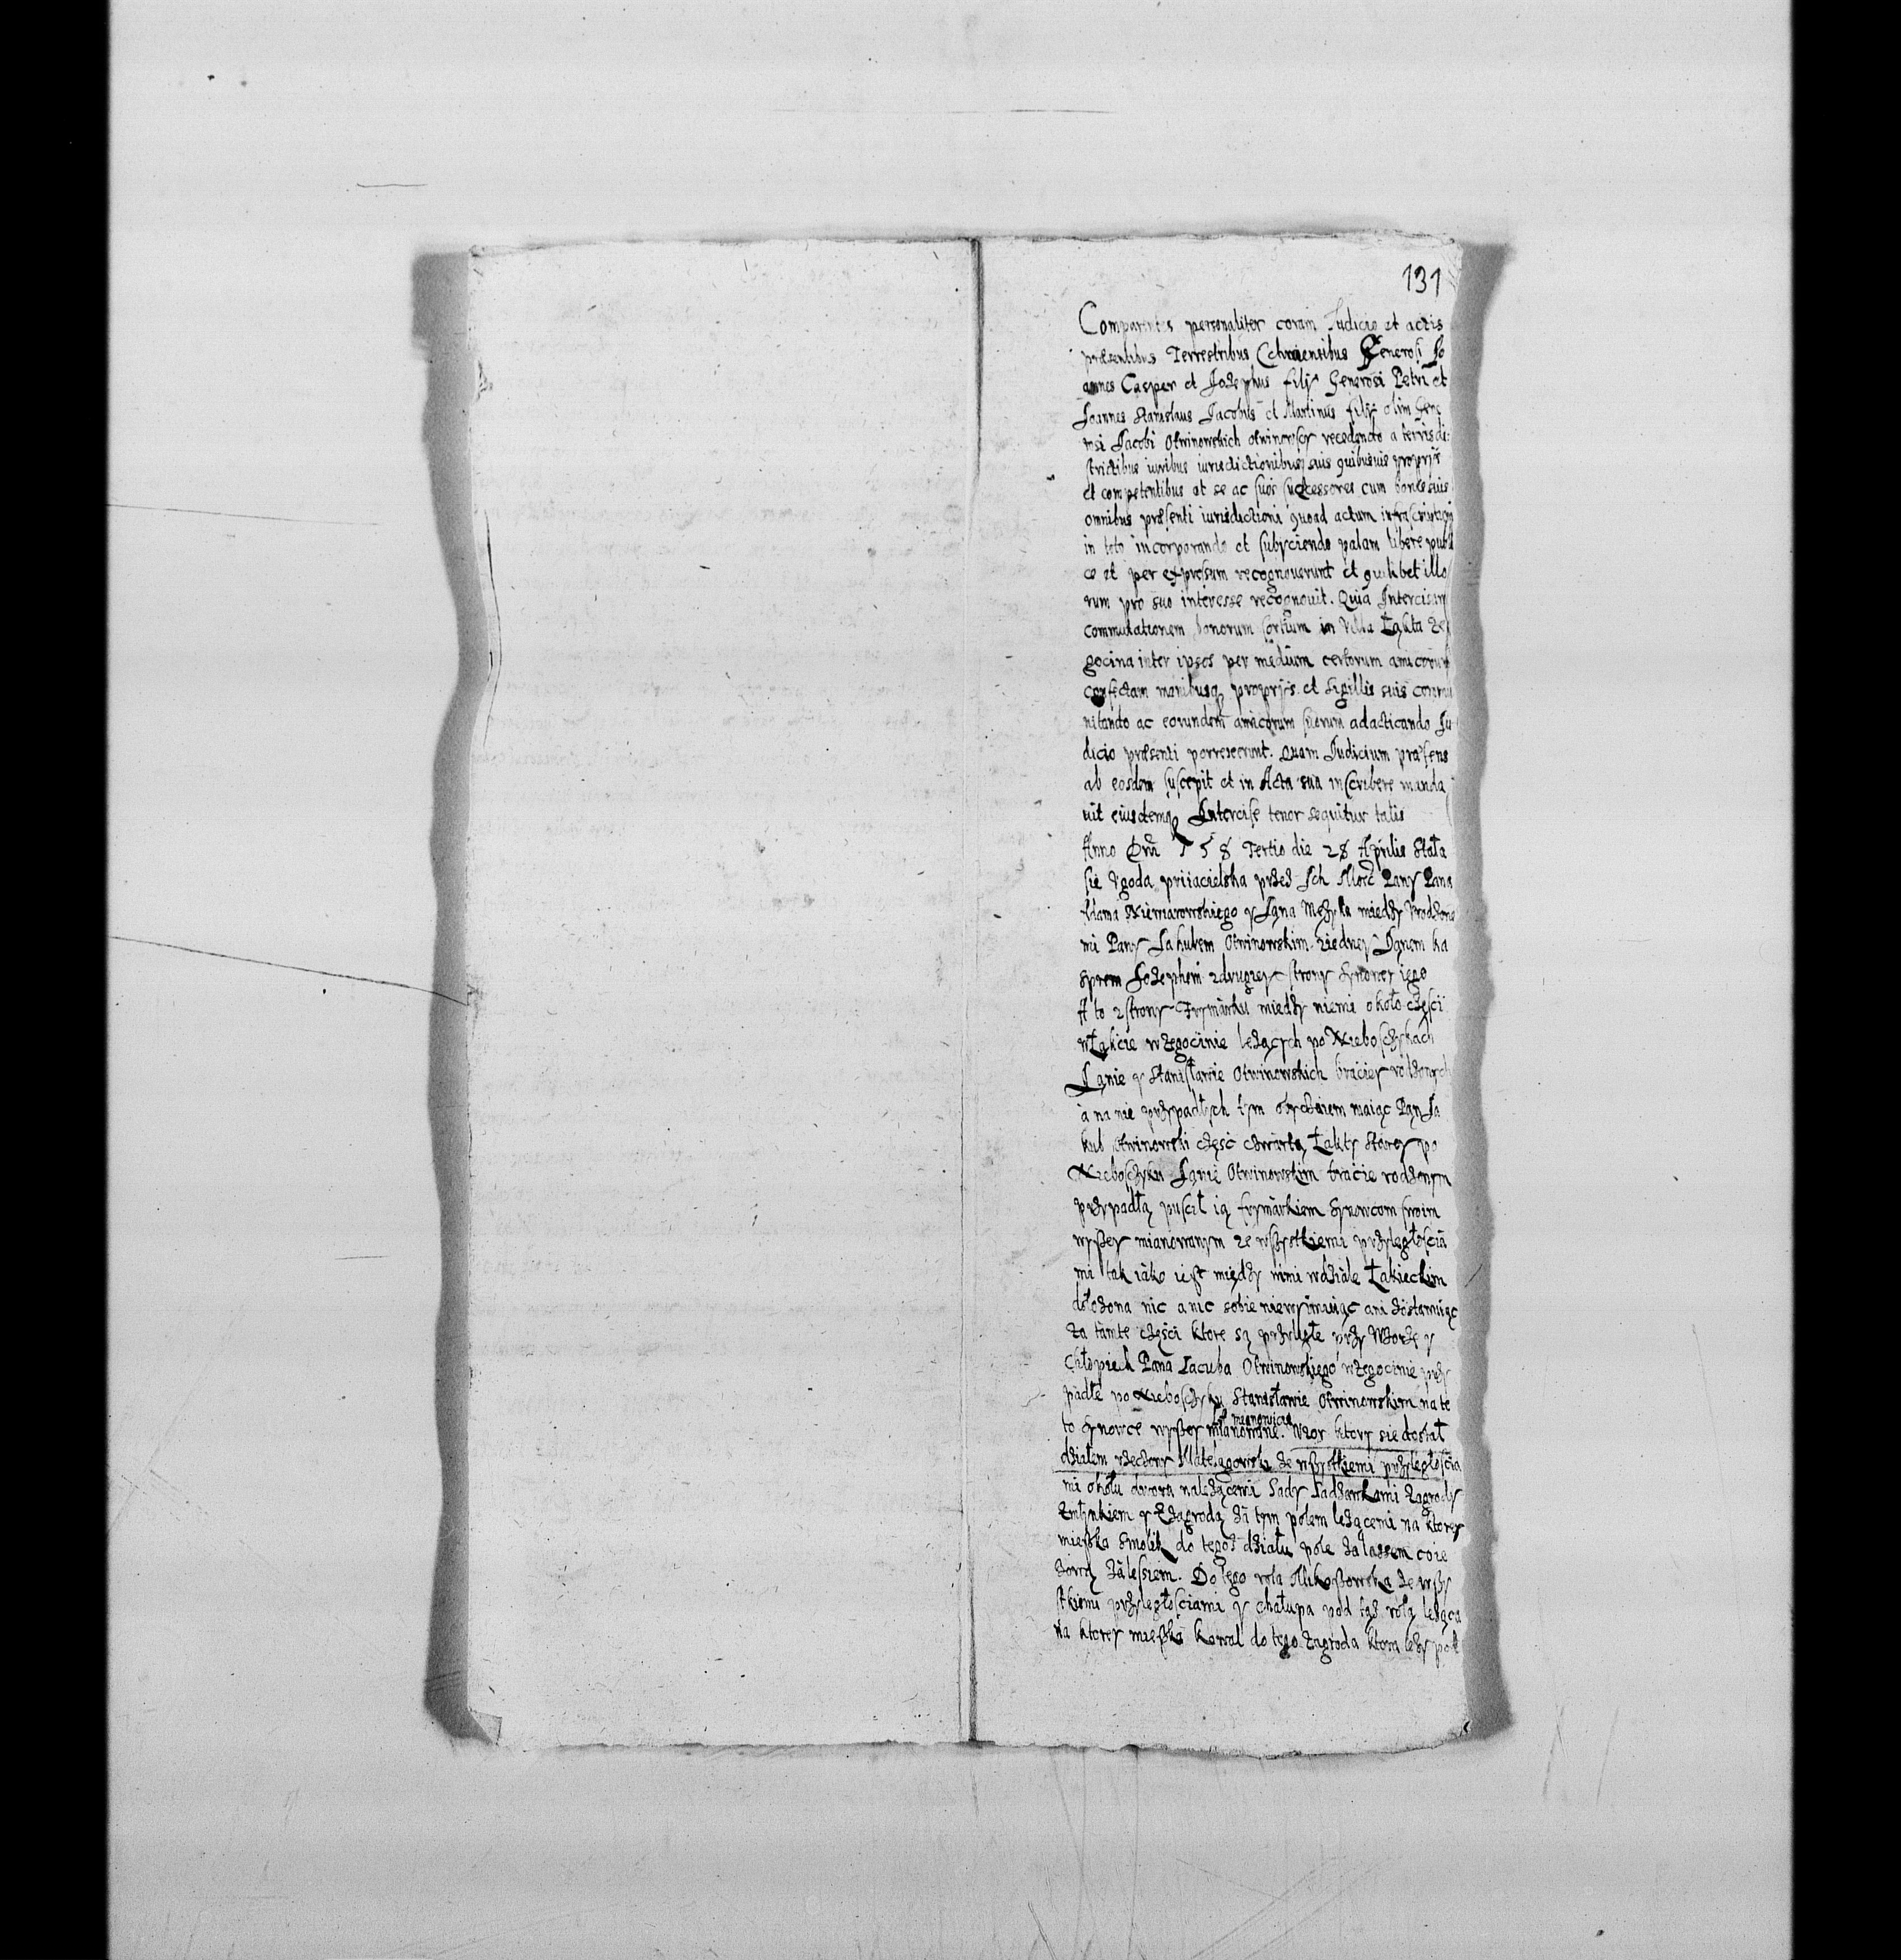 131
Comparentes personaliter coram Iudicio et actis
præsentibus Terrestribus Generosi Io
annes Casper et Iozephus filÿ Generosi Petri et
Ioannes Stanislaus Jacobus et Martinus filÿ olim Gene
rosi Jacobi Otwinowskich Otwinowscy recedendo a terris di:
strictibus iuribus iurisdictionibus suis quibusuis proprÿs
et competentibus at se ac suos successores cum bonis suis
omnibus præsenti iurisdictioni quoad actum
in toto incorporando et subÿciendo palam libere publi
ce et per expresum recognouerunt et quilibet illo
rum pro suo interesse recognouit. Quia Intercisam
commutationem bonorum sortium in Villa Łąkta Ze
gocina inter ipsos per medium certorum amicorum
confectam manibusq proprÿs et sigillis suis commu
nitando ac eorundem amicorum suorum adacticando Iu
dicio præsenti porrexerunt. Quam Iudicium præsens
ab eosdem suscepit et in Acta sua inscribere manda
uit eiusdemq Intercise tenor sequitur talis
Anno Dni 1 5 8 Tertio die 28 Aprilis Stała
sie Vgoda priiacielska przez Ich Mosc Pany Pana
Adama y Iana miedzy Vrodzone
mi Pany Jakubem Otwinowskim ziedney Ianem Ka
sprem Iozephem zdrugiey strony Synowcy iego
A to zstrony Frymarku miedzy niemi około częsci
wŁąkcie wzegocinie lezących po Nieboszczykach
Ianie y Stanisławie Otwinowskich braciey rodzonych
a na nie przypadłych tym obyczaiem maiąc Pan Ia
kub Otwinowski częsc czwartą Łakty po
Nieboszczyku Ianie Otwinowskim bracie rodzonym
przypadłą puscił ią frymarkiem Synowcom swoim
wyßey mianowanym ze wszystkiemi przyległoscia
mi tak iako iest między nimi wdziale Łakieckim
dołozona nic a nic sobie niewymuiąc ani zostawuiąc
za tamte częsci ktore są przyległe przy y
Chłopiech Pana Iacuba Otwinowskiego wzegocinie przy
padłe po Nieboszczyku Stanisławie Otwinowskim na te
to Synowce wyßey mianowane. ktory sie dostał
mianowicie
działem rzeczony ze wszystkiemi przyległoscia
mi około dwora nalezącemi Sady Sadzawkami zagrody
zmłynkiem y zzagrodą za tym polem lezącemi na ktorey
mieszka Smolik do tegoz działu pole za lassem
zalesiem. Do tego rola ze wszy
stkiemi przyległosciami y chałupa pod tąz rolą lezącą
na ktorey mieszka Kowal do tego zagroda ktora lezy pod